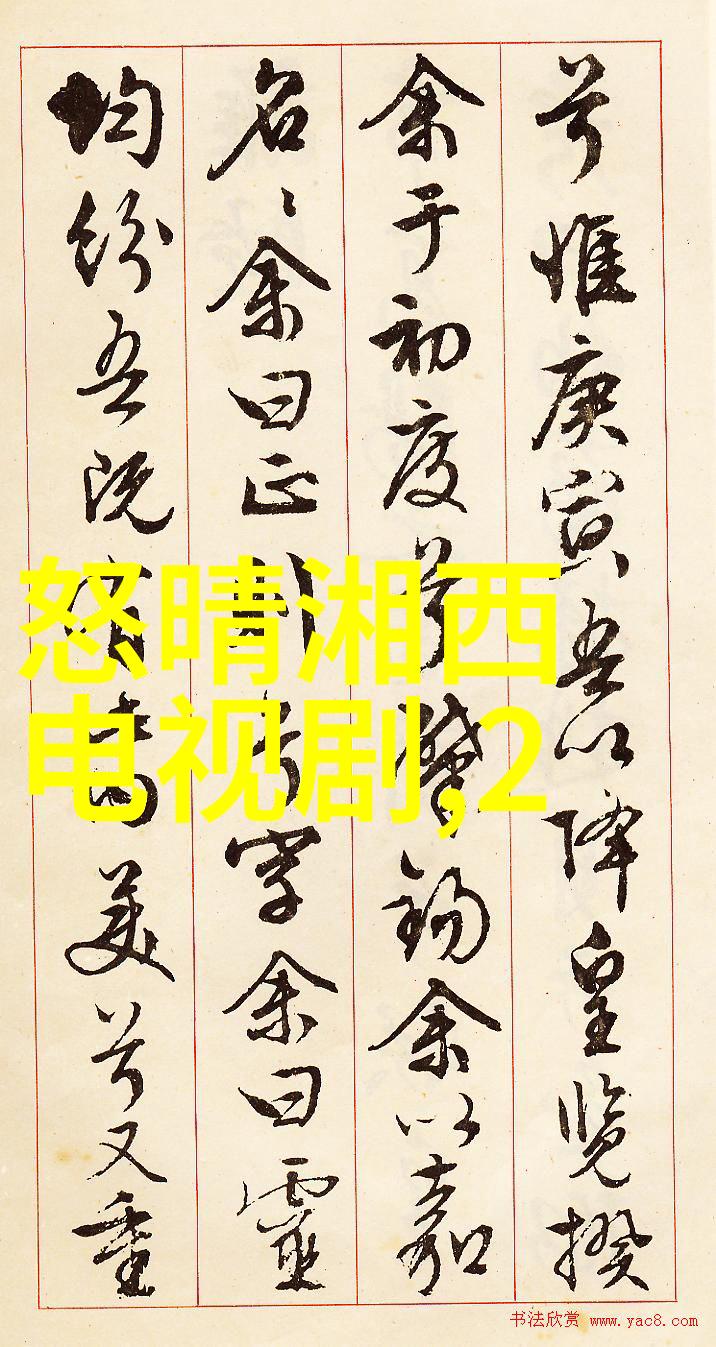 兮惟庚寅吾以降皇覽揆
余于初度兮肇錫余以嘉
名〻余曰正則兮字余曰靈
均紛吾既有此内美兮又重
怒晴湘西
电视剧,2
书法欣赏 www.yac8.com